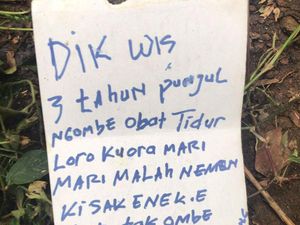 DIK WIS
3 tAHUN pungul
NGOMBE Obat TiduR
LoRo KuoRa MARI
MARI MALAH NEMEN
KiSAK ENEK.E
OMBE